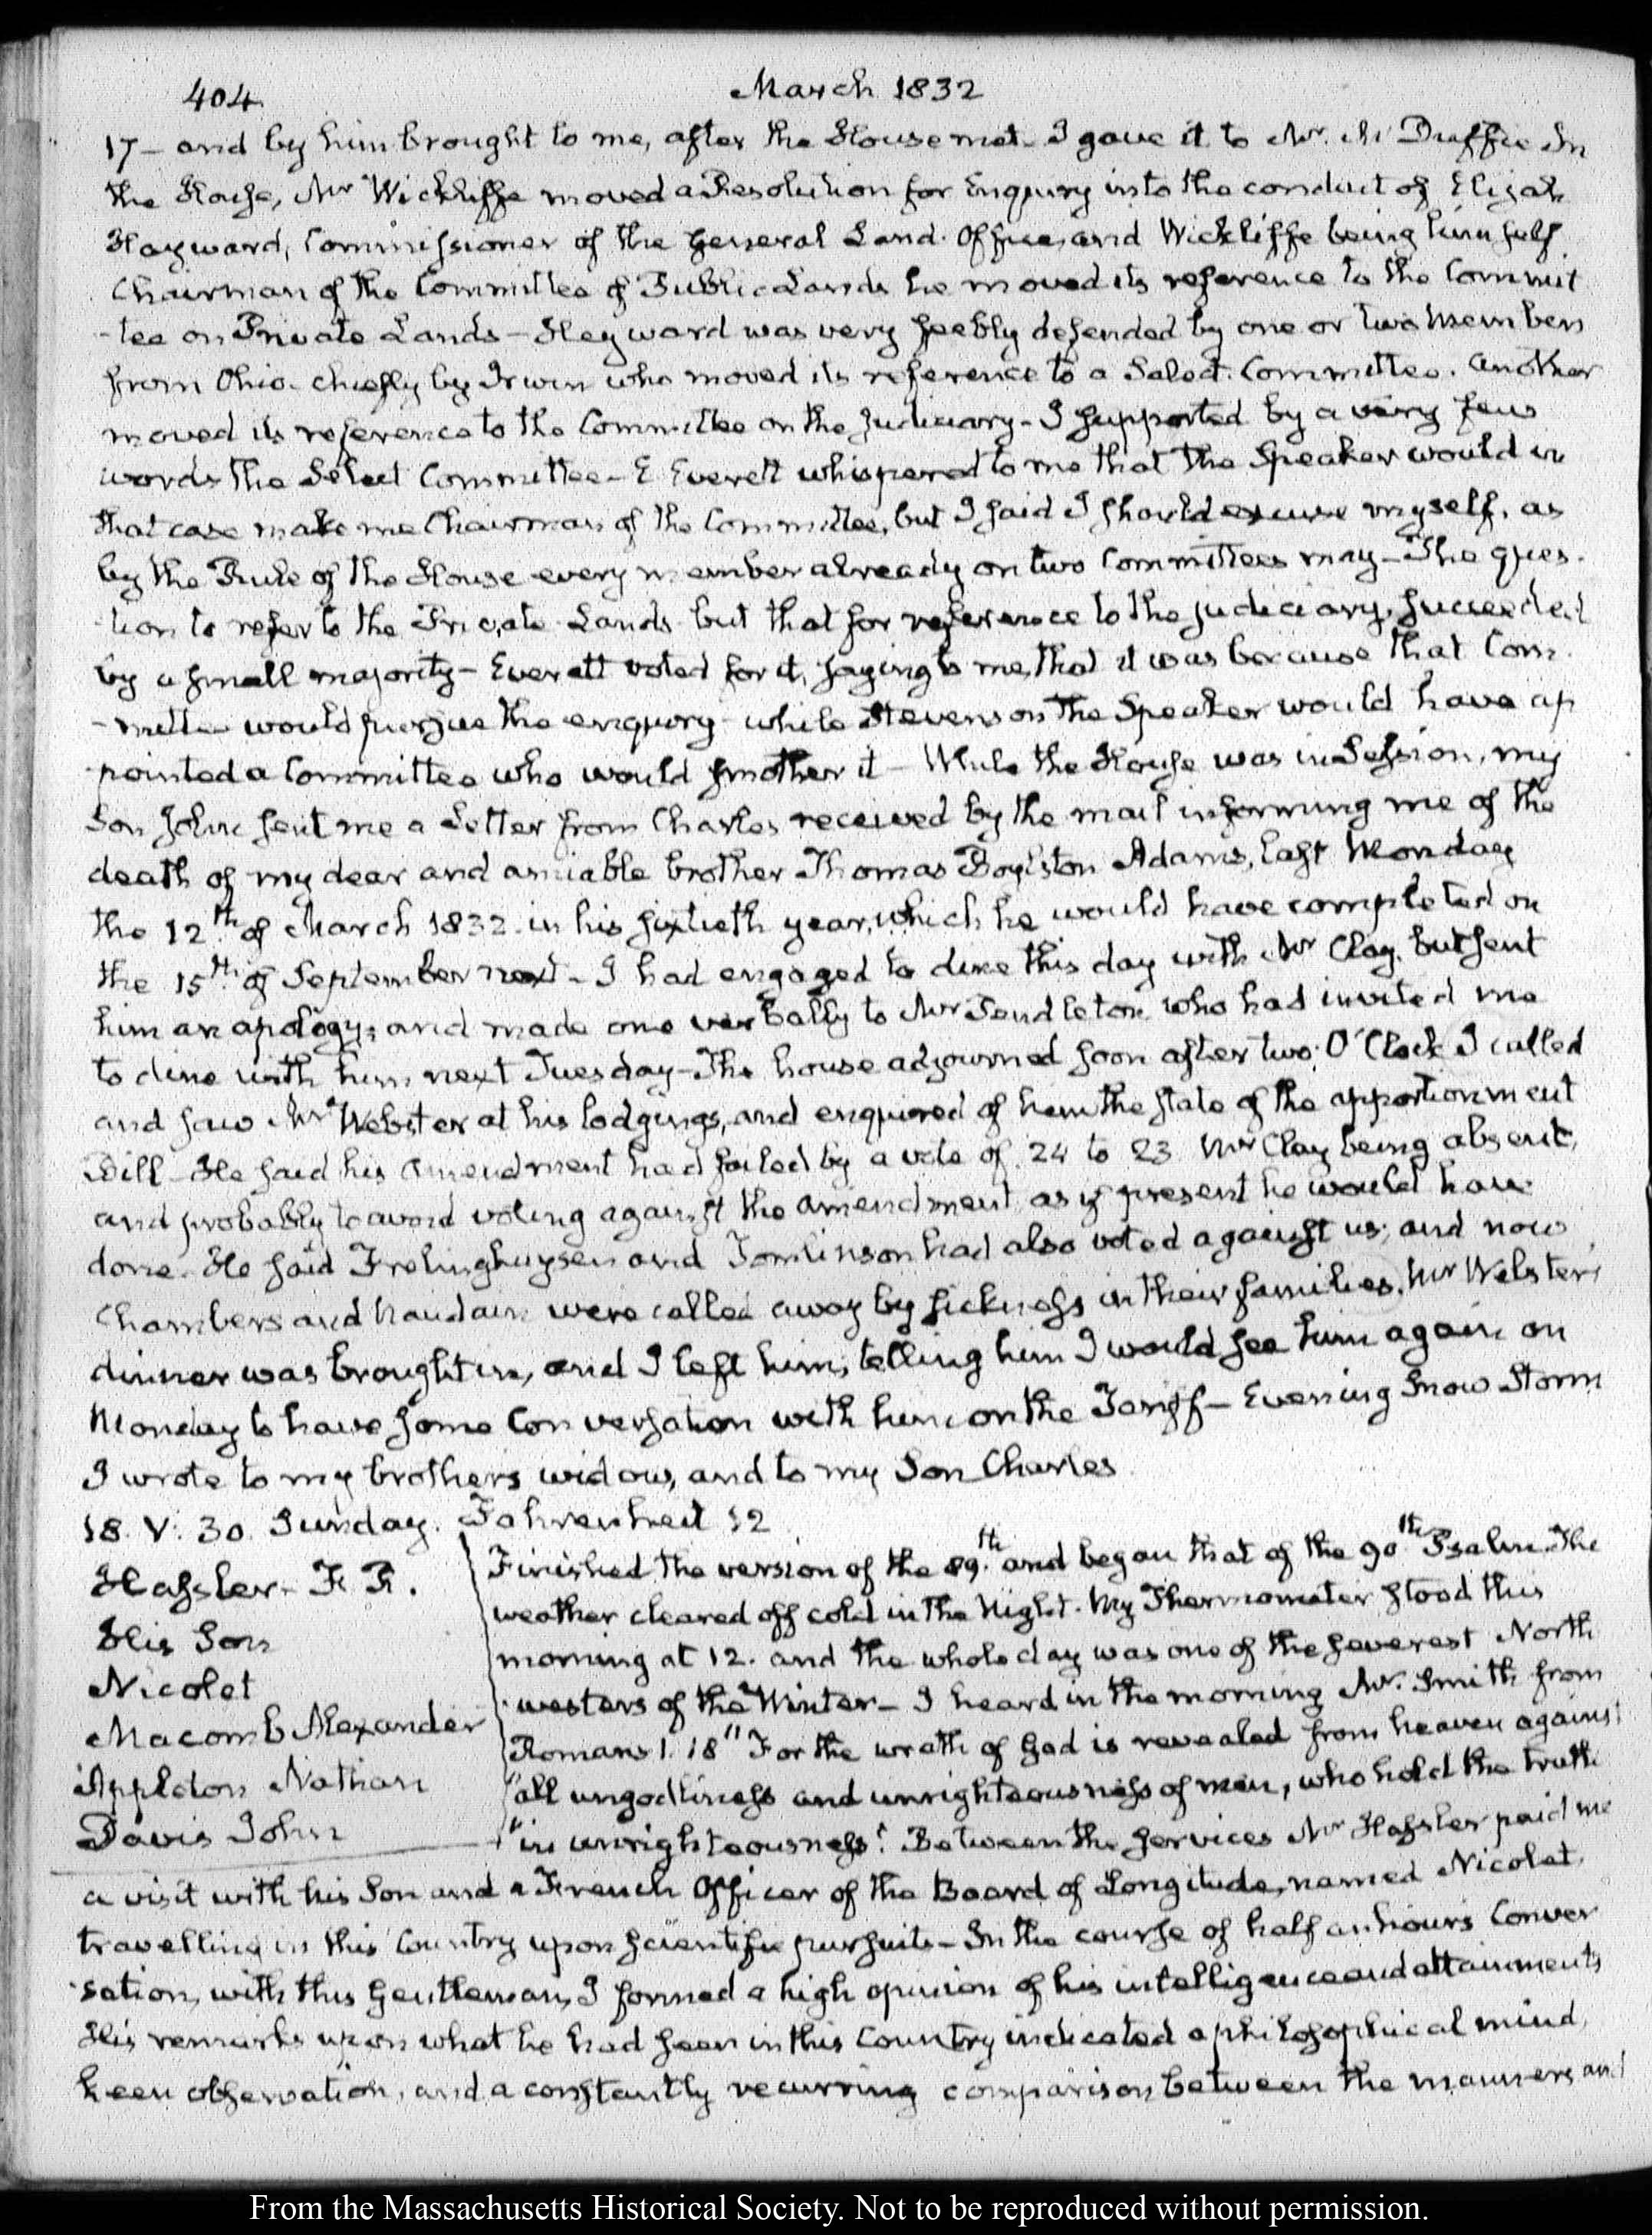 404
March 1832
17 – and by him brought to me, after the House met. I gave it to Mr. Mc Duffie In
the House, Mr Wickliffe moved a Resolution for Enquiry into the conduct of Elijah
Hayward, Commissioner of the General Land Office, and Wickliffe being himself
Chairman of the Committee of Public Lands he moved its reference to the Commit
-tee on Private Lands – Hayward was very feebly defended by one or two Members
from Ohio. chiefly by Irwin who moved its reference to a Select Committee. Another
moved its reference to the Committee on the Judiciary – I supported by a very few
words the Select Committee – E. Everett whispered to me that the Speaker would in
that case make me Chairman of the Committee, but I said I should excuse myself, as
by the Rule of the House every member already on two Committees may – The ques-
-tion to refer to the Private Lands but that for reference to the judiciary, succeeded
by a small majority – Everett voted for it, saying to me, that it was because that Com-
-mittee would pursue the enquiry – while Stevenson the Speaker would have ap
-pointed a Committee who would smother it – While the House was in Session, my
Son John sent me a Letter from Charles received by the mail informing me of the
death of my dear and amiable brother Thomas Boylston Adams, last Monday
the 12th of March 1832. in his sixtieth year, which he would have completed on
the 15th of September next – I had engaged to dine this day with Mr Clay, but sent
him an apology; and made one verbally to Mr Pendleton who had invited me
to dine with him next Tuesday – The house adjourned soon after two O'Clock I called
and saw Mr Webster at his lodgings, and enquired of him the state of the apportionment
Bill – He said his Amendment had failed by a vote of 24 to 23 Mr Clay being absent,
and probably to avoid voting against the amendment as if present he would have
done. He said Frelinghuysen and Tomlinson had also voted against us; and now
Chambers and Naudain were called away by sickness in their families. Mr Webster's
dinner was brought in, and I left him, telling him I would see him again on
Monday to have some Conversation with him on the Tariff – Evening Snow Storm
I wrote to my brothers widow, and to my Son Charles
18. V: 30. Sunday. Fahrenheit 12
Hassler – F. R.
His Son
Nicolet
Macomb Alexander
Appleton Nathan
Davis John
Finished the version of the 89th and began that of the 90th Psalm. The
weather cleared off cold in the Night. My Thermometer stood this
morning at 12. and the whole day was one of the severest North
westers of the Winter – I heard in the morning Mr. Smith from
Romans 1. 18 "For the wrath of God is revealed from heaven against
"all ungodliness and unrighteousness of men, who hold the truth
"in unrighteousness." Between the services Mr Hassler paid me
a visit with his Son and a French Officer of the Board of Longitude, named Nicolet,
travelling in this Country upon scientific pursuits – In the course of half an hours Conver
-sation, with this Gentleman, I formed a high opinion of his intelligence and attainments
His remarks upon what he had seen in this Country indicated a philosophical mind,
keen observation, and a constantly recurring comparison between the manners and
From the Massachusetts Historical Society. Not to be reproduced without permission.